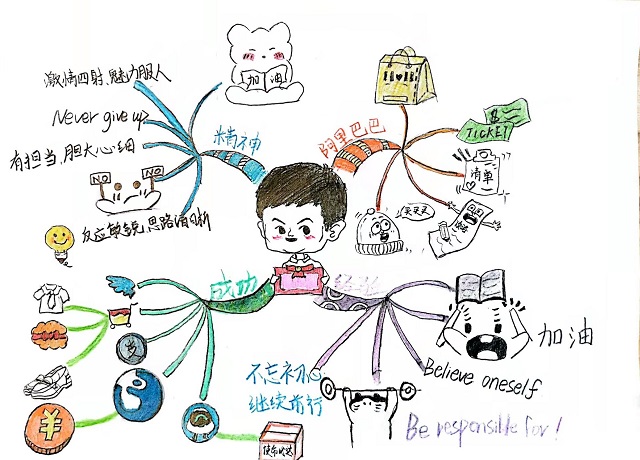 激情四射、魅力服人
Never give up
有担当、胆大心细
NO NO
反应敏锐 思路清晰
加 油
精神
阿里巴巴
TICKET
清单
成功
加油
Believe oneself
Be responsible for!
不忘初心
继续前行
¥